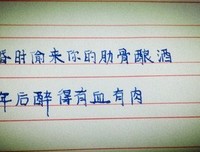 昏时偷来你的肋骨酿酒
年后醉得有血有肉